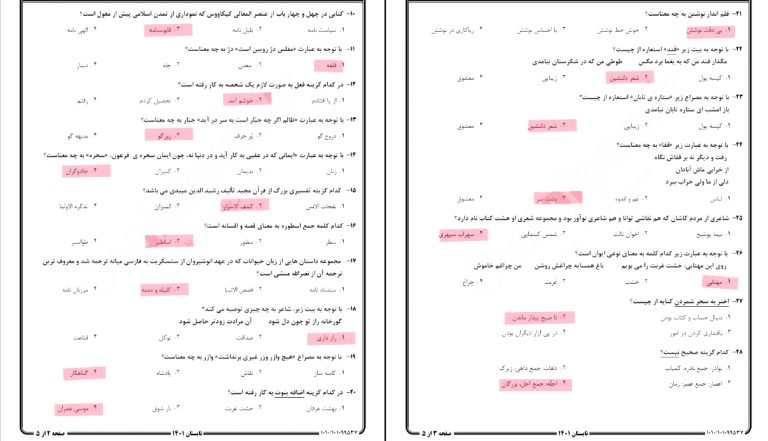 ۱۰- کتابی در چهل و چهار باب از عنصر المعالی کیکاووس که نموداری از تمدن اسلامی پیش از مغول است؟
۱. سیاست نامه ۲. بلبل نامه ۳. قابوسنامه ۴. الهی نامه
۱۱- با توجه به عبارت «مفلس دژ رویین است» دژ به چه معناست؟
۱. قلعه ۲. معدن ۳. چاه ۴. دینار
۱۲- در کدام گزینه فعل به صورت لازم یک شخصه به کار رفته است؟
۱. از پا افتادم ۲. خوشم آمد. ۳. تحصیل کردم. ۴. رفتم
۱۳- با توجه به عبارت «ظالم اگر چه جبّار است به سر در آید» جبّار به چه معناست؟
۱. دروغ گو ۲. پُر حرف ۳. زورگو ۴. بدیهه گو
۱۴- با توجه به عبارت «ایمانی که در عقبی به کار آید و در دنیا نه، چون ایمان سحره ی فرعون، «سحره» به چه معناست؟
۱. زنان ۲. ندیمان ۳. کنیزان ۴. جادوگران
۱۵- کدام گزینه تفسیری بزرگ از قرآن مجید تألیف رشید الدین میبدی می باشد؟
۱. نفحات الانس ۲. کشف الاسرار ۳. المیزان ۴. تذکره الاولیا
۱۶- کدام کلمه جمع اسطوره به معنای قصه و افسانه است؟
۱. سطر ۲. سطور ۳. اساطیر ۴. طواسیر
۱۷- مجموعه داستان هایی از زبان حیوانات که در عهد انوشیروان از سنسکریت به فارسی میانه ترجمه شد و معروف ترین
ترجمه آن از نصرالله منشی است؟
۱. سندباد نامه ۲. قصص الانبیا ۳. کلیله و دمنه ۴. مرزبان نامه
۱۸- با توجه به بیت زیر، شاعر به چه چیزی توصیه می کند؟
گورخانه راز تو چون دل شود آن مرادت زودتر حاصل شود
۱. راز داری ۲. صداقت ۳. توکل ۴. قناعت
۱۹- با توجه به مصراع «هیچ وازر وزر غیری برنداشت» وازر به چه معناست؟
۱. کاسه ساز ۲. نقاش ۳. پادشاه ۴. گناهکار
۲۰- در کدام گزینه اضافه بنوت به کار رفته است؟
۱. بهشت عرفان ۲. خشت غربت ۳. بار شوق ۴. موسی عمران
۱۰۱۰/۱۰۱۰۹۹۵۳۷ تابستان ۱۴۰۱ صفحه ۲ از ۵
۲۱- قلم انداز نوشتن به چه معناست؟
۱. بی دقت نوشتن ۲. خوش خط نوشتن ۳. با احساس نوشتن ۴. ریاکاری در نوشتن
۲۲- با توجه به بیت زیر «قند» استعاره از چیست؟
مگذار قند من که به یغما برد مگس طوطی من که در شکرستان نیامدی
۱. کیسه پول ۲. شعر دلنشین ۳. زیبایی ۴. معشوق
۲۳- با توجه به مصراع زیر «ستاره ی تابان» استعاره از چیست؟
باز امشب ای ستاره تابان نیامدی
۱. کیسه پول ۲. زیبایی ۳. شعر دلنشین ۴. معشوق
۲۴- با توجه به عبارت زیر «قفا» به چه معناست؟
رفت و دیگر نه بر قفاش نگاه
از خرابی ماش آبادان
دلی از ما ولی خراب ببرد
۱. لباس ۲. غم و اندوه ۳. پشت سر ۴. معشوق
۲۵- شاعری از مردم کاشان که هم نقاشی توانا و هم شاعری نوآور بود و مجموعه شعری او هشت کتاب نام دارد؟
۱. نیما یوشیج ۲. اخوان ثالث ۳. شمس کسمایی ۴. سهراب سپهری
۲۶- با توجه به عبارت زیر کدام کلمه به معنای نوعی ایوان است؟
روی این مهتابی، خشت غربت را می بویم باغ همسایه چراغش روشن من چراغم خاموش
۱. مهتابی ۲. خشت ۳. غربت ۴. چراغ
۲۷- اختر به سحر شمردن کنایه از چیست؟
۱. دنبال حساب و کتاب بودن ۲. تا صبح بیدار ماندن
۳. پافشاری کردن در امور ۴. در پی آزار دیگران بودن
۲۸- کدام گزینه صحیح نیست؟
۱. نوادر: جمع نادره، کمیاب ۲. دهات: جمع داهی، زیرک
۳. اعصار: جمع عصر، زمان ۴. اجلّه: جمع اجل، بزرگان
۱۰۱۰/۱۰۱۰۹۹۵۳۷ تابستان ۱۴۰۱ صفحه ۳ از ۵